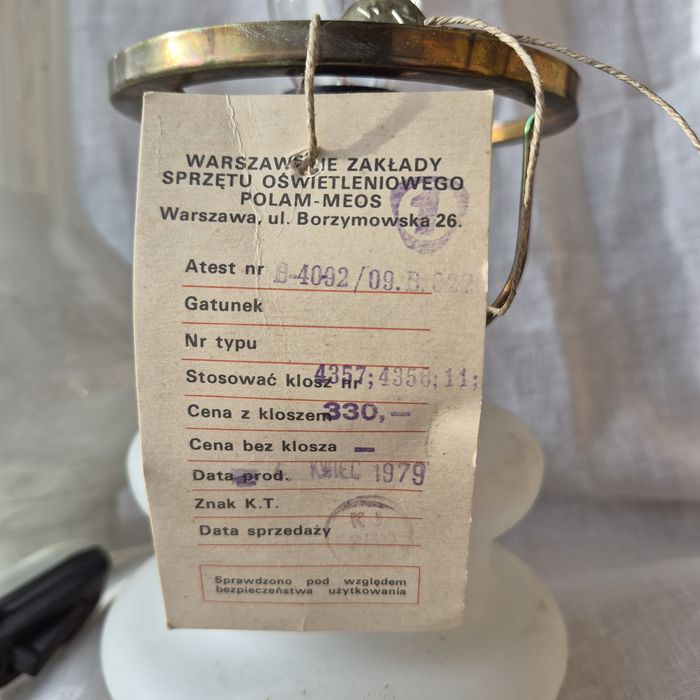 WARSZAWSKIE ZAKŁADY
SPRZĘTU OŚWIETLENIOWEGO
POLAM-MEOS
Warszawa, ul. Borzymowska 26.
1
Atest nr B-4092/09.D.
Gatunek
Nr typu
Stosować klosz nr 4357; 4356; 11;
Cena z kloszem 330,—
Cena bez klosza —
Data prod. KWIEC 1979
Znak K.T.
Data sprzedaży
Sprawdzono pod względem
bezpieczeństwa użytkowania